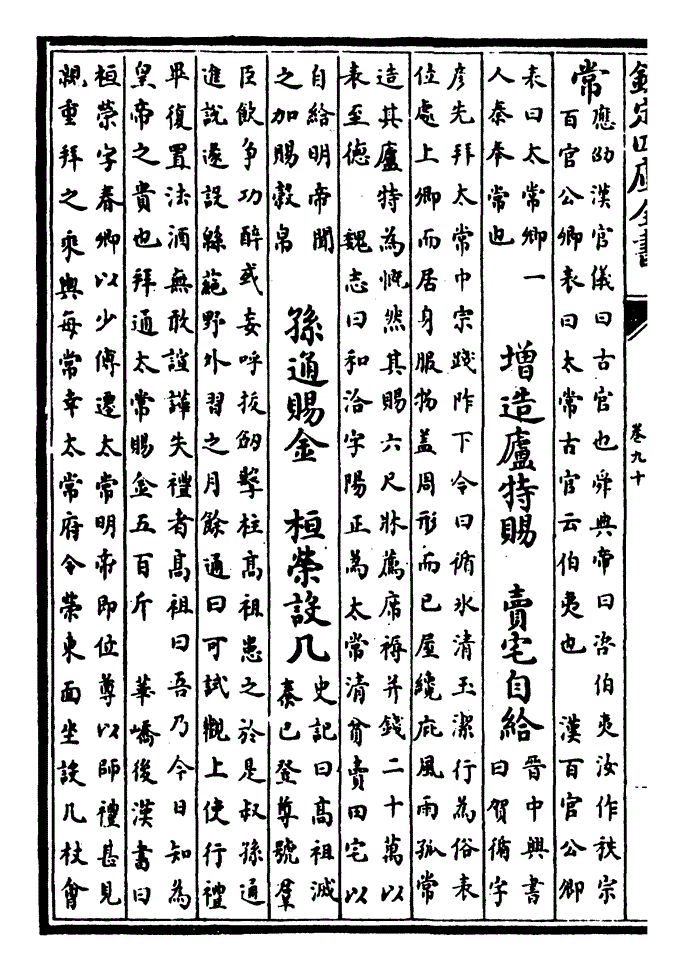 欽定四庫全書 卷九十
常
應劭漢官儀曰古官也舜典帝曰咨伯夷汝作秩宗
百官公卿表曰太常古官云伯夷也 漢百官公卿
表曰太常卿一
人秦奉常也
增造廬特賜 賣宅自給
晉中興書
曰賀循字
彦先拜太常中宗踐阼下令曰循氷清玉潔行為俗表
位處上卿而居身服物蓋周形而已屋纔庇風雨孤常
造其廬特為慨然其賜六尺牀薦席褥并錢二十萬以
表至德 魏志曰和洽字陽正為太常清貧賣田宅以
自給明帝聞
之加賜穀帛
孫通賜金 桓榮設几
史記曰高祖滅
秦已登尊號羣
臣飲争功醉或妄呼拔劒擊柱高祖患之於是叔孫通
進說遂設緜蕝野外習之月餘通曰可試觀上使行禮
畢復置法酒無敢諠譁失禮者高祖曰吾乃今日知為
皇帝之貴也拜通太常賜金五百斤 華嶠後漢書曰
桓榮字春卿以少傅遷太常明帝即位尊以師禮甚見
親重拜之乘輿每常幸太常府令榮東面坐設几杖會